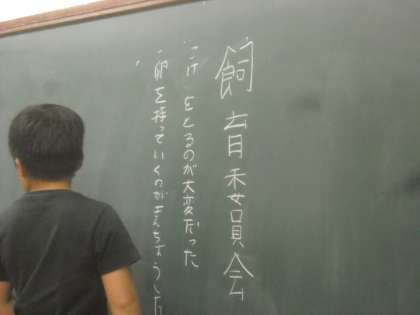 飼育委員会
・こけをとるのが大変だった
・卵を持っていくのがきんちょうした